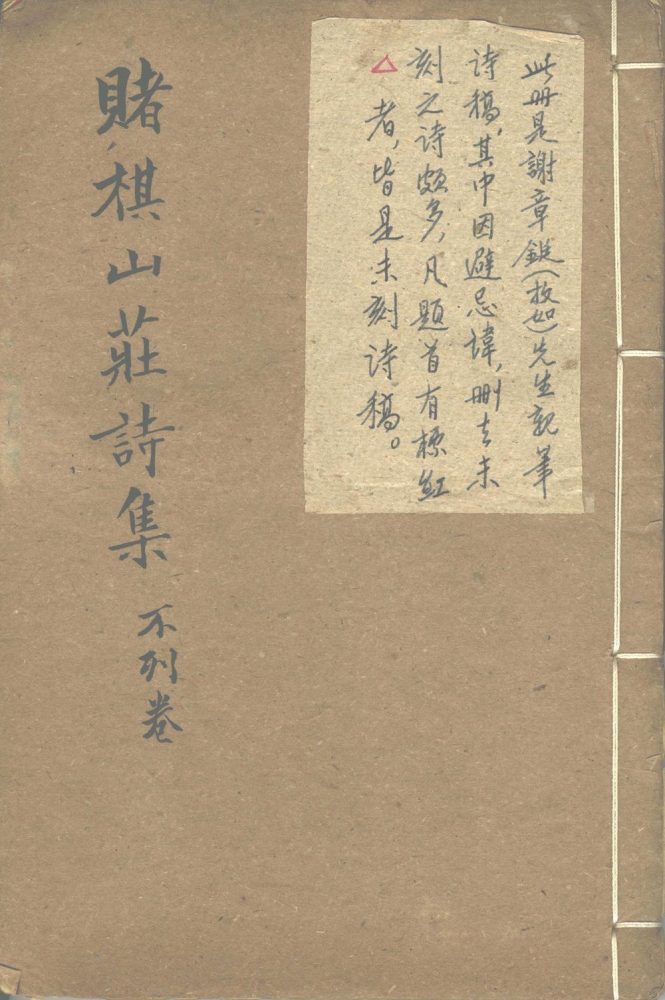 此册是謝章鋌(枚如)先生親筆
诗稿,其中因避忌諱,删去未
刻之诗頗多,凡题首有標紅
△者,皆是未刻诗稿。
賭棋山莊詩集 不列卷